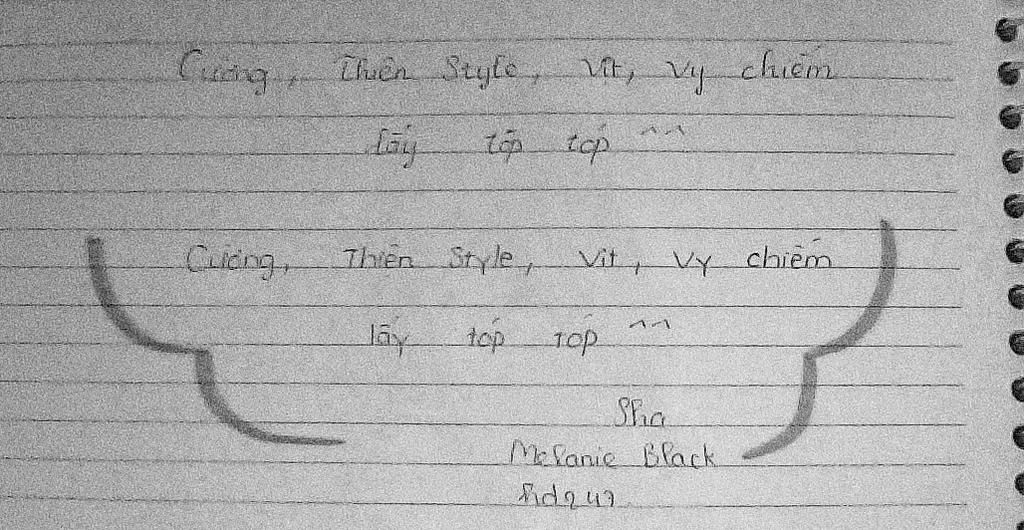 Cương, Thiên Style, Vit, Vy chiếm
lấy tóp tóp ^^
Cương, Thiên Style, Vit, Vy chiếm
lấy tóp tóp ^^
Sha
Melanie Black